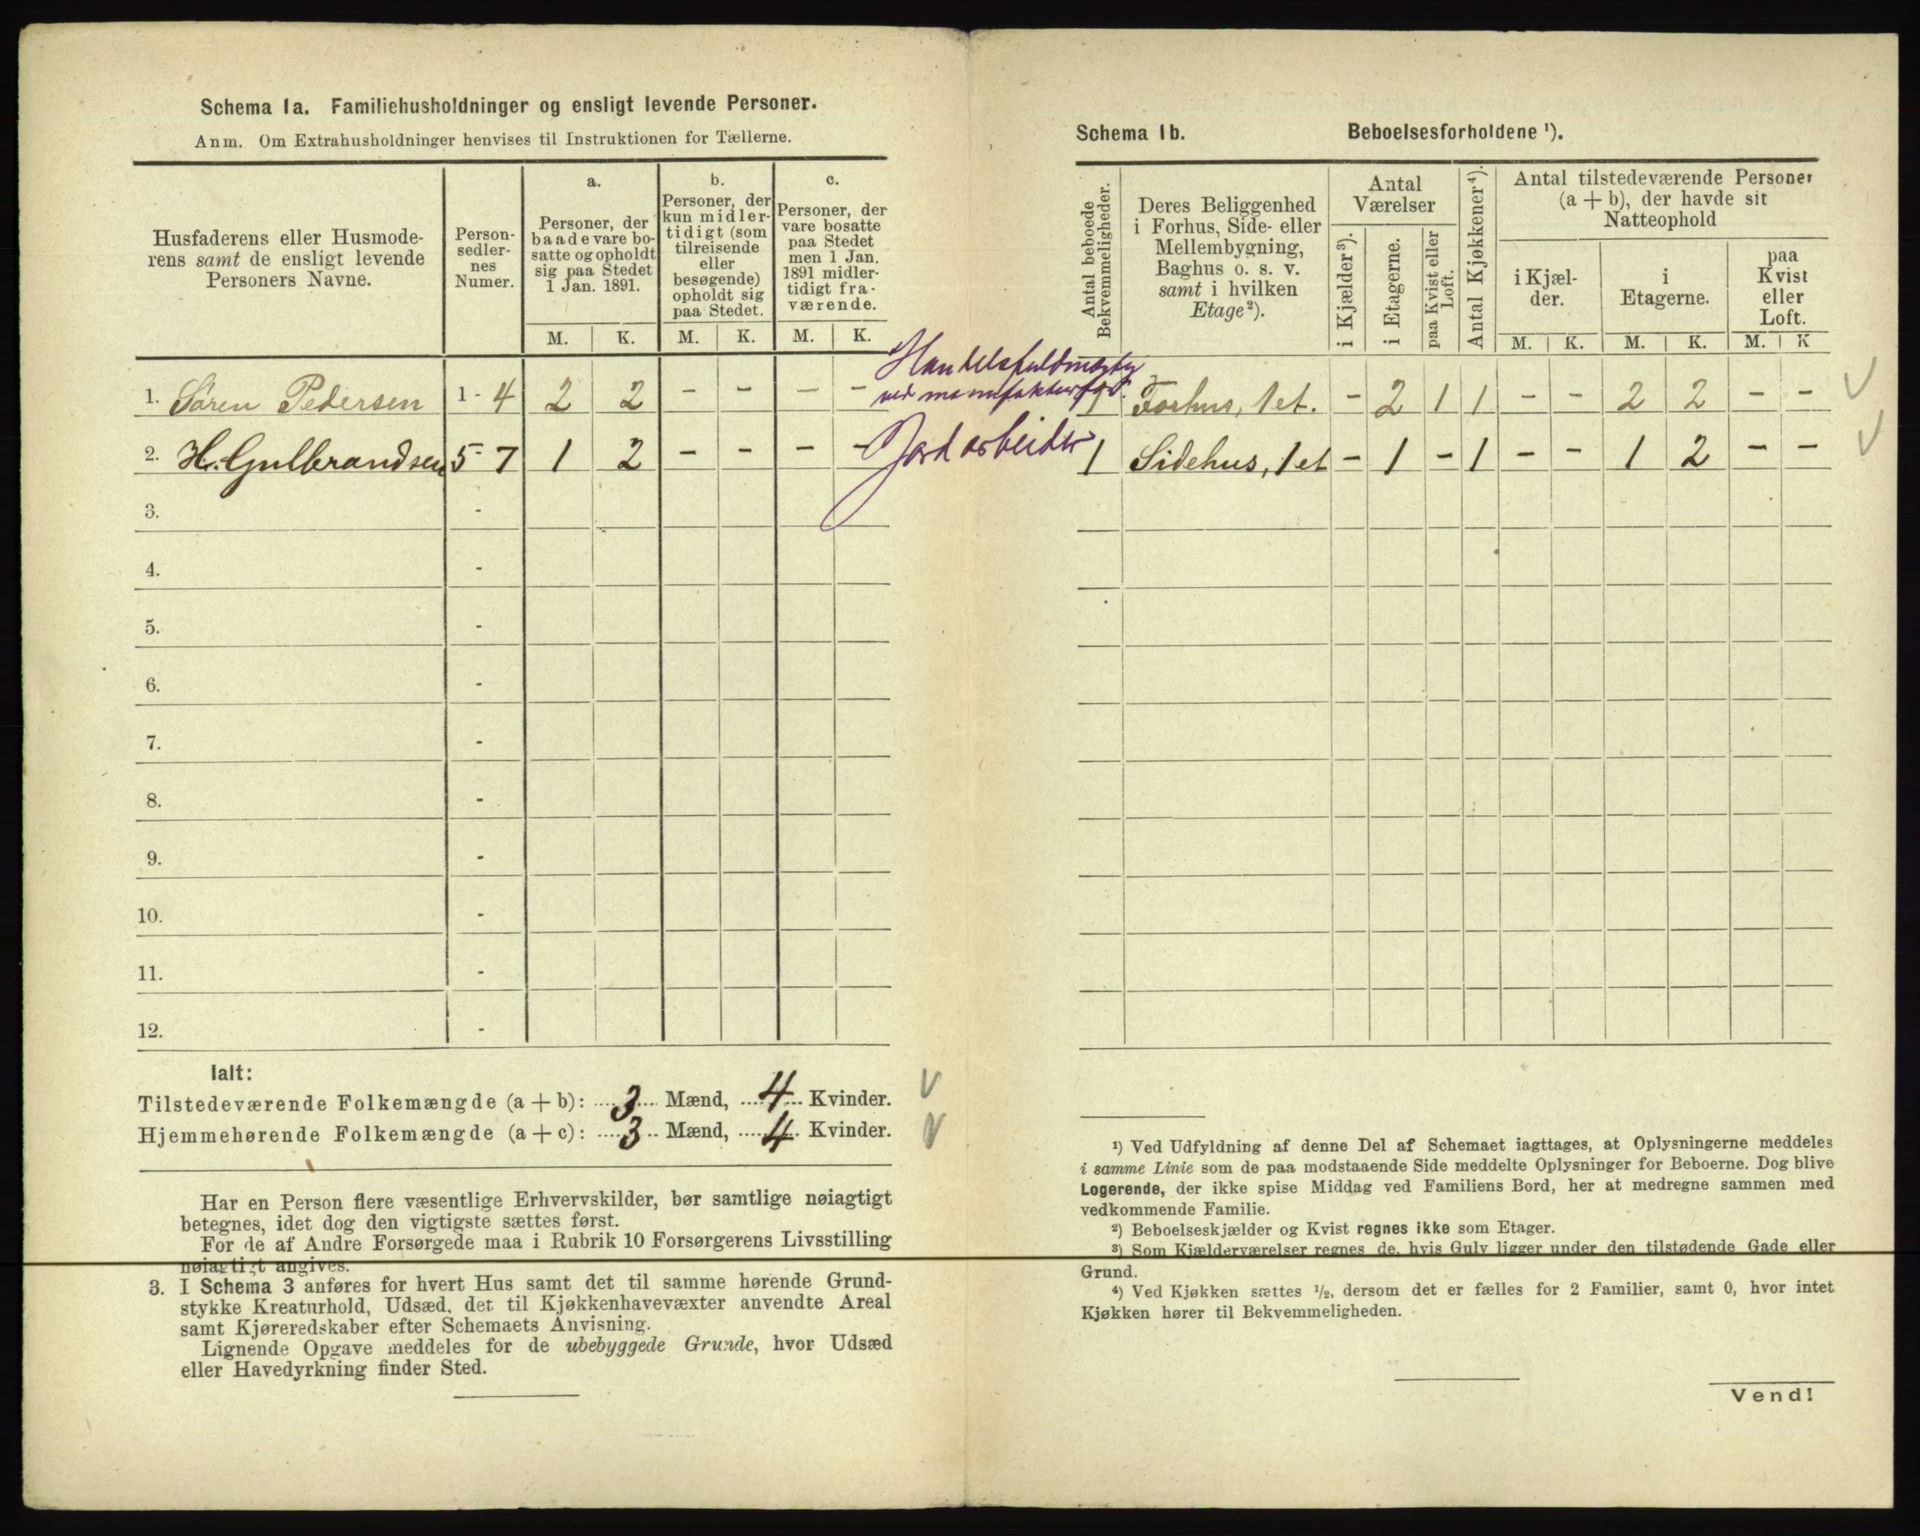 Schema 1a. Familiehusholdninger og ensligt levende Personer.
Anm. Om Extrahusholdninger henvises til Instruktionen for Tællerne.
Husfaderens eller Husmode-
rens samt de ensligt levende
Personers Navne.
Person-
sedler-
nes
Numer.
a.
Personer, der
baade vare bo-
satte og opholdt
sig paa Stedet
1 Jan. 1891.
b.
Personer, der
kun midler-
tidigt (som
tilreisende
eller
besøgende)
opholdt sig
paa Stedet.
c.
Personer, der
vare bosatte
paa Stedet
men 1 Jan.
1891 midler-
tidigt fra-
værende.
M. K. M. K. M. K.
1. Søren Pedersen 1 - 4 2 2 - - - -
2. H. Gulbrandsen 5 - 7 1 2 - - - -
3. -
4. -
5. -
6. -
7. -
8. -
9. -
10. -
11. -
12. -
Handelsfuldmægtig
ved manufakturforr.
Jordarbeider
Ialt:
Tilstedeværende Folkemængde (a + b): 3 Mænd, 4 Kvinder.
Hjemmehørende Folkemængde (a + c): 3 Mænd, 4 Kvinder.
Har en Person flere væsentlige Erhvervskilder, bør samtlige nøiagtigt
betegnes, idet dog den vigtigste sættes først.
For de af Andre Forsørgede maa i Rubrik 10 Forsørgerens Livsstilling
nøiagtigt angives.
3. I Schema 3 anføres for hvert Hus samt det til samme hørende Grund-
stykke Kreaturhold, Udsæd, det til Kjøkkenhavevæxter anvendte Areal
samt Kjøreredskaber efter Schemaets Anvisning.
Lignende Opgave meddeles for de ubebyggede Grunde, hvor Udsæd
eller Havedyrkning finder Sted.
Schema 1b. Beboelsesforholdene ¹).
Antal beboede
Bekvemmeligheder.
Deres Beliggenhed
i Forhus, Side- eller
Mellembygning,
Baghus o. s. v.
samt i hvilken
Etage²).
Antal
Værelser
i Kjælder³).
i Etagerne.
paa Kvist eller
Loft.
Antal Kjøkkener⁴).
Antal tilstedeværende Personer
(a + b), der havde sit
Natteophold
i Kjæl-
der.
i
Etagerne.
paa
Kvist
eller
Loft.
M. K. M. K. M. K
1 Forhus, 1 et. - 2 1 1 - - 2 2 - -
1 Sidehus, 1 et - 1 - 1 - - 1 2 - -
¹) Ved Udfyldning af denne Del af Schemaet iagttages, at Oplysningerne meddeles
i samme Linie som de paa modstaaende Side meddelte Oplysninger for Beboerne. Dog blive
Logerende, der ikke spise Middag ved Familiens Bord, her at medregne sammen med
vedkommende Familie.
²) Beboelseskjælder og Kvist regnes ikke som Etager.
³) Som Kjælderværelser regnes de, hvis Gulv ligger under den tilstødende Gade eller
Grund.
⁴) Ved Kjøkken sættes ½, dersom det er fælles for 2 Familier, samt 0, hvor intet
Kjøkken hører til Bekvemmeligheden.
Vend!